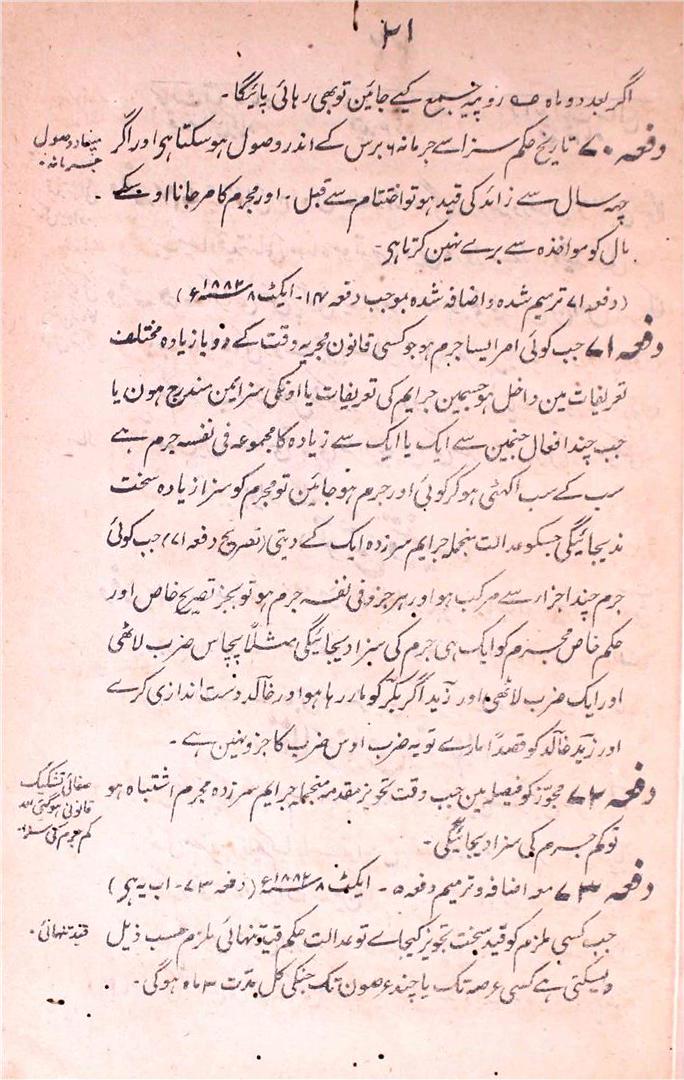 ۲۱
اگر بعد دو ماہ صہ روپیہ جمع کیے جائین تو بھی رہائی پائیگا۔
دفعہ ۷۰ تاریخ حکم سزا سے جرمانہ ۶ برس کے اندر وصول ہو سکتا ہی اور اگر
میعاد وصول
جرمانہ۔
چھہ سال سے زائد کی قید ہو تو اختتام سے قبل۔ اور مجرم کا مرجانا اوسکے
مال کو مواخذہ سے برے نہین کرتا ہی۔
(دفعہ ۷۱ ترمیم شدہ و اضافہ شدہ بموجب دفعہ ۴۔ ایکٹ ۸ ۱۸۸۲ء)
دفعہ ۷۱ جب کوئی امر ایسا جرم ہو جو کسی قانون مجریہ وقت کے دو یا زیادہ مختلف
تعریفات مین داخل ہو جسمین جرایم کی تعریفات یا اونکی سزایمن مندرج ہون یا
جب چند افعال جنمین سے ایک یا ایک سے زیادہ کا مجموعہ فی نفسہ جرم ہے
سب کے سب اکھٹی ہو کر کوئی اور جرم ہو جائین تو مجرم کو سزا زیادہ سخت
ندیجائیگی جسکو عدالت منجملہ جرایم سرزدہ ایک کے دیتی (تصریح دفعہ ۷۱) جب کوئی
جرم چند اجزار سے مرکب ہو اور ہر جزو فی نفسہ جرم ہو تو بجز تصریح خاص اور
حکم خاص مجرم کو ایک ہی جرم کی سزا دیجائیگی مثلاً پچاس ضرب لاٹھی
اور ایک ضرب لاٹھی اور زید اگر بکر کو مار رہا ہو اور خالد دست اندازی کرے
اور زید خالد کو قصداً مارے تو یہ ضرب اوس ضرب کا جزو نہین ہے۔
دفعہ ۷۲ مجوز کو فیصلہ مین جب وقت تجویز مقدمہ منجملہ جرایم سرزدہ مجرم اشتباہ ہو
صفائی تشکیک
قانونی ہو
کم جرم کی سزا۔
تو کم جرم کی سزا دیجائیگی۔
دفعہ ۷۳ معہ اضافہ و ترمیم دفعہ ۵۔ ایکٹ ۸ ۱۸۸۲ء (دفعہ ۷۳۔ اب یہ ہی)
جب کسی ملزم کو قید سخت تجویز کیجاے تو عدالت حکم قید تنہائی ملزم حسب ذیل
قید تنہائی۔
دیسکتی ہے کسی عرصہ تک یا چند عرصون تک جنکی کل مدت ۳ ماہ ہوگی۔